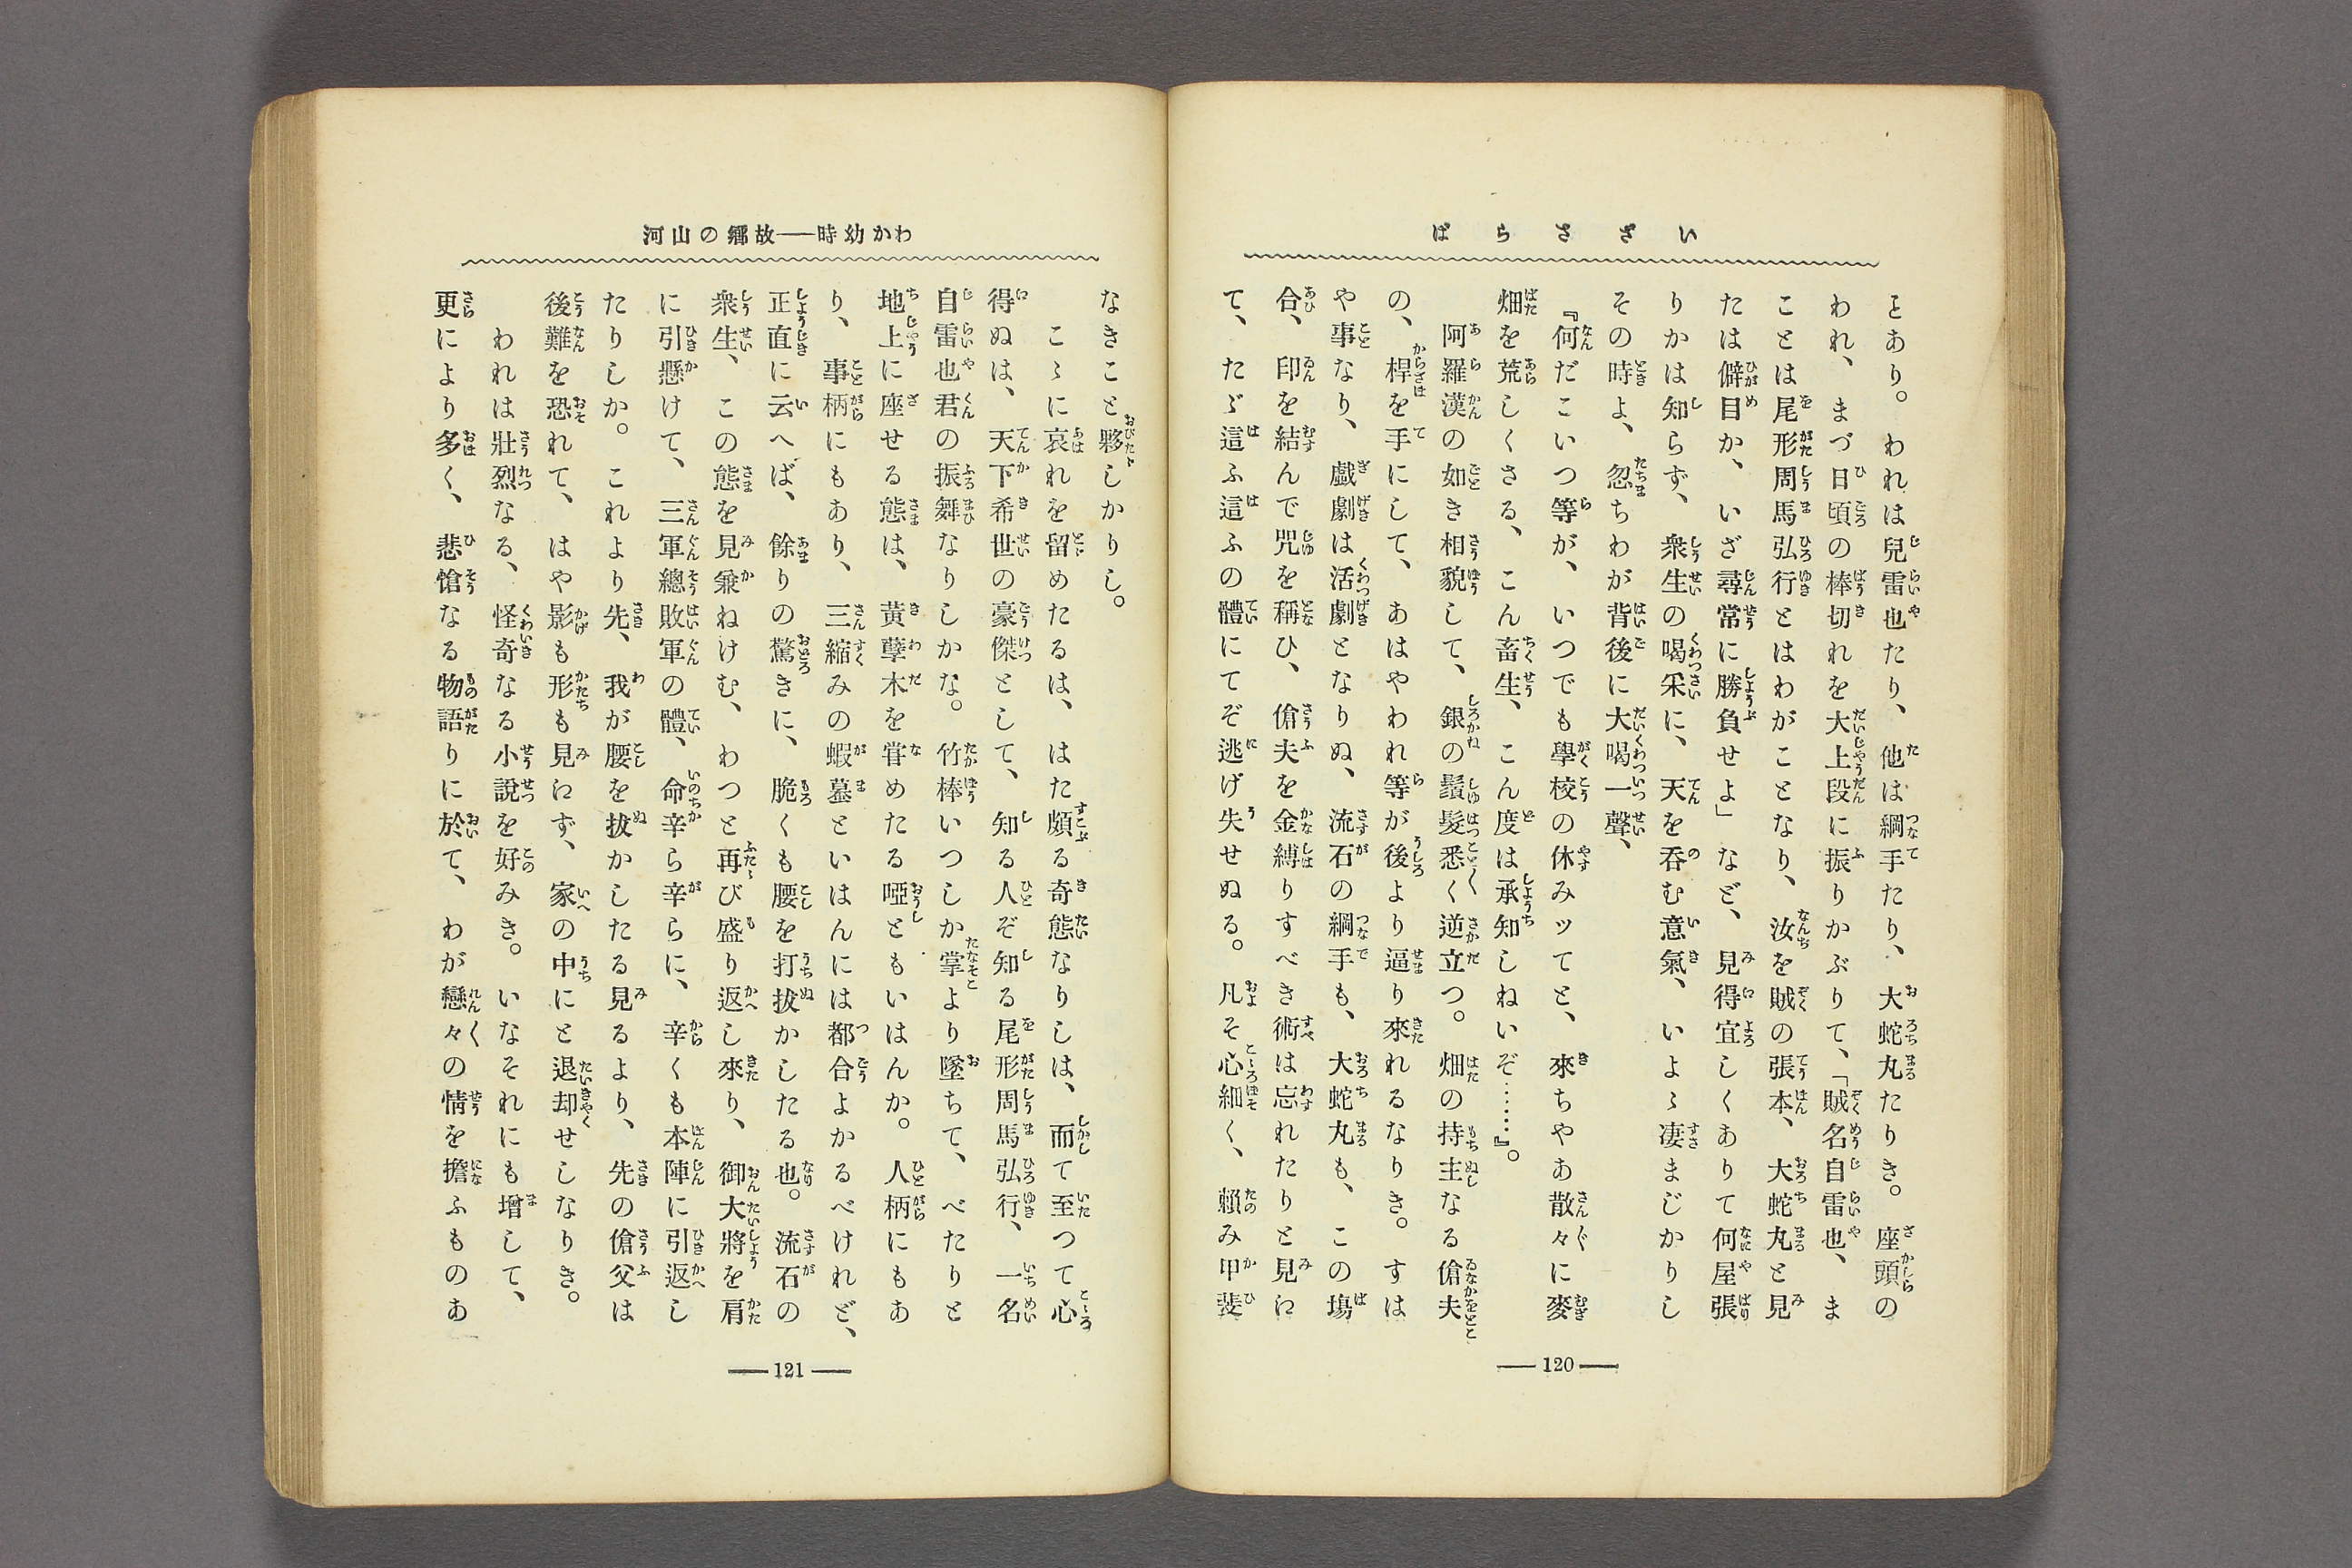 いざさらば
とあり。われは兒雷也たり、他は綱手たり、大蛇丸たりき。座頭の
われ、まづ日頃の棒切れを大上段に振りかぶりて、「賊名自雷也、ま
ことは尾形周馬弘行とはわがことなり、汝を賊の張本、大蛇丸と見
たは僻目か、いざ尋常に勝負せよ」など、見得宜しくありて何屋張
りかは知らず、衆生の喝采に、天を呑む意氣、いよゝ凄まじかりし
その時よ、忽ちわが背後に大喝一聲、
『何だこいつ等が、いつでも學校の休みッてと、來ちやあ散々に麥
畑を荒しくさる、こん畜生、こん度は承知しねいぞ……』。
阿羅漢の如き相貌して、銀の鬚髮悉く逆立つ。畑の持主なる傖夫
の、桿を手にして、あはやわれ等が後より逼り來れるなりき。すは
や事なり、戲劇は活劇となりぬ、流石の綱手も、大蛇丸も、この塲
合、印を結んで咒を稱ひ、傖夫を金縛りすべき術は忘れたりと見に
て、たゞ這ふ這ふの體にてぞ逃げ失せぬる。凡そ心細く、賴み甲斐
120
わか幼時——故鄕の山河
なきこと夥しかりし。
こゝに哀れを留めたるは、はた頗る奇態なりしは、而して至つて心
得ぬは、天下希世の豪傑として、知る人ぞ知る尾形周馬弘行、一名
自雷也君の振舞なりしかな。竹棒いつしか掌より墜ちて、べたりと
地上に座せる態は、黄蘗木を甞めたる啞ともいはんか。人柄にもあ
り、事柄にもあり、三縮みの蝦蟇といはんには都合よかるべけれど、
正直に云へば、餘りの驚きに、脆くも腰を打拔かしたる也。流石の
衆生、この態を見兼ねけむ、わつと再び盛り返し來り、御大將を肩
に引懸けて、三軍總敗軍の體、命辛ら辛らに、辛くも本陣に引返し
たりしか。これより先、我が腰を拔かしたる見るより、先の傖父は
後難を恐れて、はや影も形も見にず、家の中にと退却せしなりき。
われは壯烈なる、怪奇なる小說を好みき。いなそれにも增して、
更により多く、悲愴なる物語りに於て、わが戀々の情を擔ふものあ
121